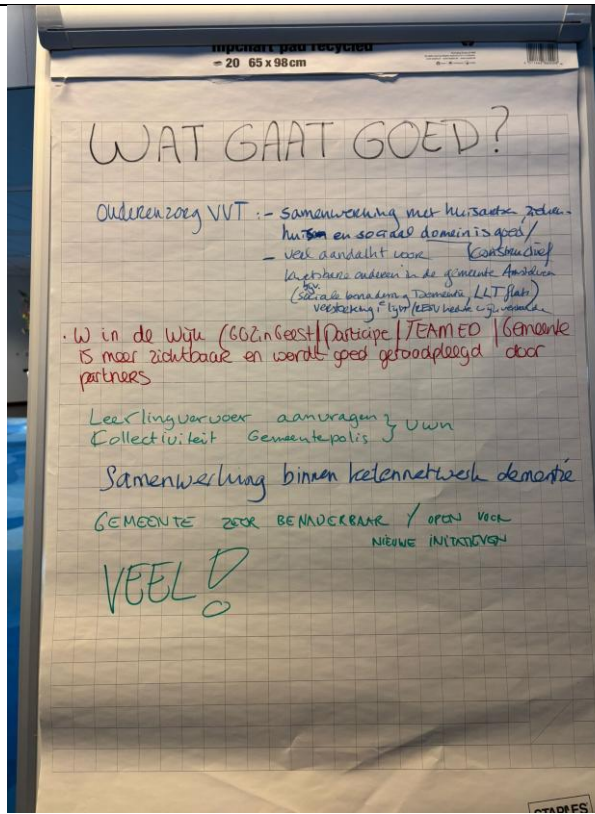 flipchart pad recycled
20 65 x 98cm
WAT GAAT GOED?
Ouderenzorg VVT : - samenwerking met huisartsen, zieken-
huizen en sociaal domein is goed /
- veel aandacht voor constructief
kwetsbare ouderen in de gemeente Amstelveen
bijv.
(Sociale benadering Dementie, LLT flats)
versterking 1e lijn /
· W in de Wijk (GGZinGeest | Participe | TEAM ED | Gemeente
is meer zichtbaar en wordt goed geraadpleegd door
partners
Leerlingvervoer aanvragen } UWV
Collectiviteit Gemeentepolis
Samenwerking binnen ketennetwerk dementie
GEMEENTE ZEER BENADERBAAR / OPEN VOOR
NIEUWE INITIATIEVEN
VEEL!
STAPLES